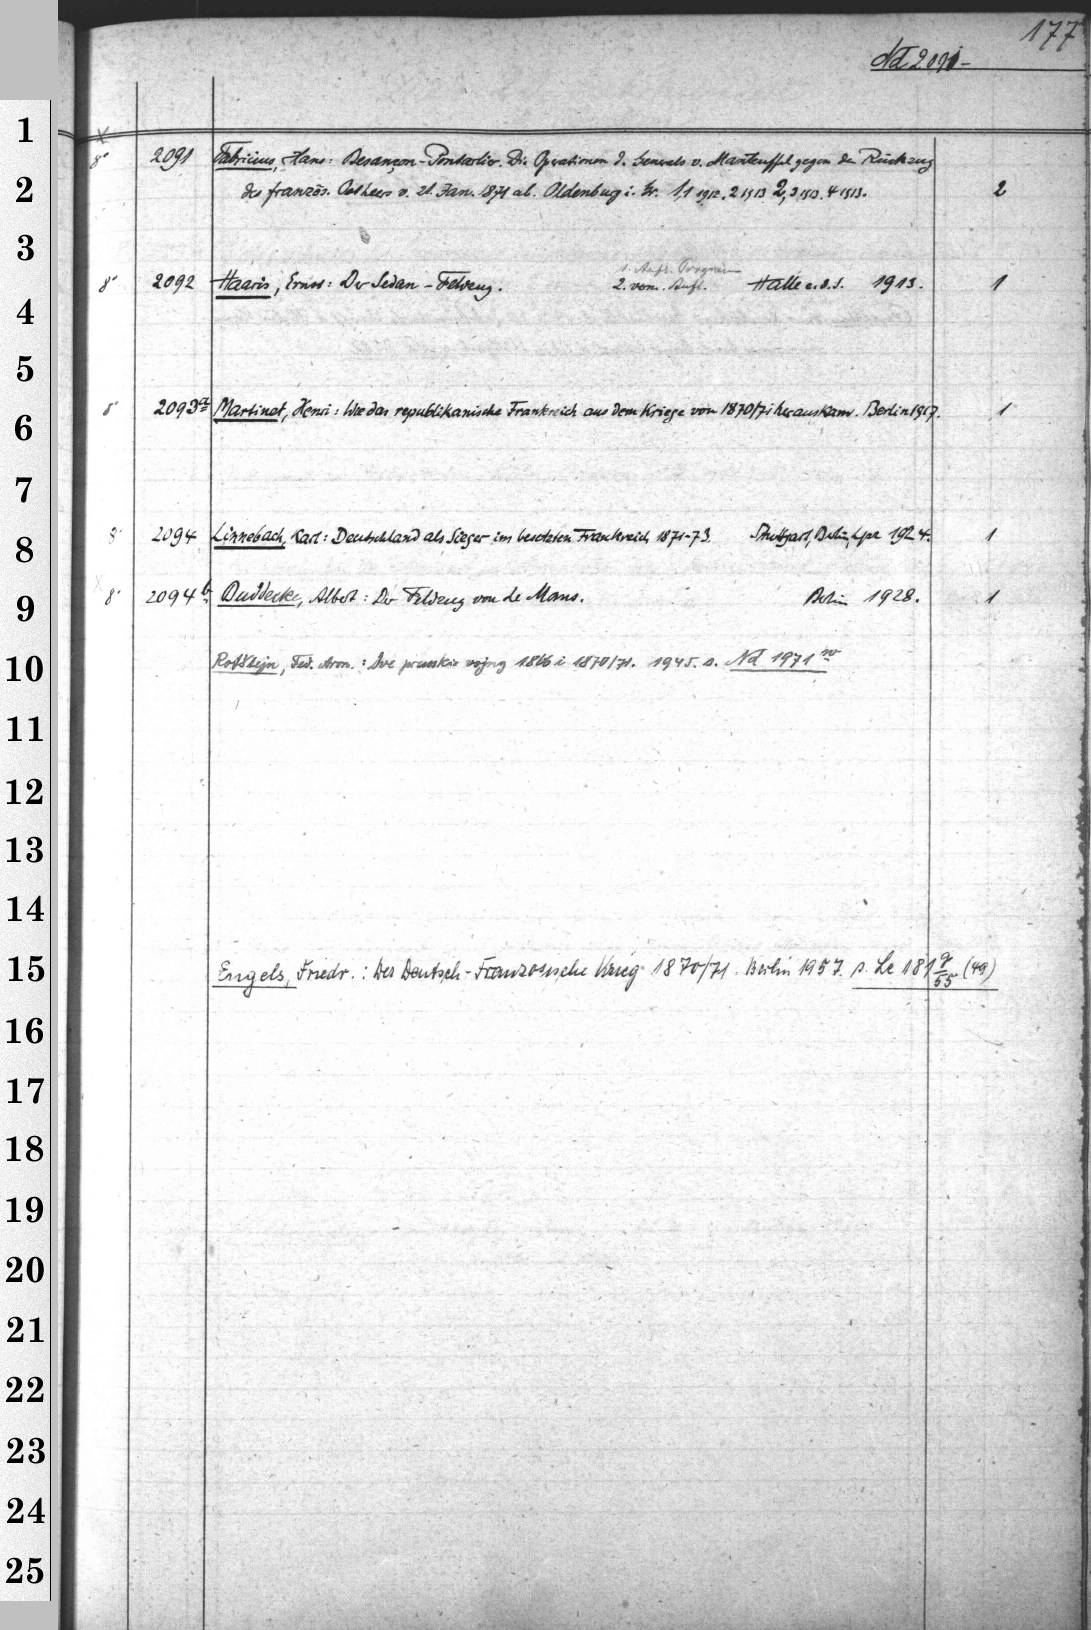 177
Nd 2091-
8° 2091 Fabricius, Hans: Besançon-Pontarlier. Die Operationen d. Generals v. Manteuffel gegen den Rückzug
des französ. Ostheers v. 21. Jan. 1871 ab. Oldenburg i. Gr. 1,1 1912. 2 1913 2,3 1913. 4 1913. 2
1. Aufl. Programm
8° 2092 Haaris, Ernst: Der Sedan-Feldzug. 2. verm. Aufl. Halle a. d. S. 1913. 1
8° 2093a Martinet, Henri: Wie das republikanische Frankreich aus dem Kriege von 1870/71 herauskam. Berlin 1917. 1
8° 2094 Linnebach, Karl: Deutschland als Sieger im besetzten Frankreich 1871-73. Stuttgart, Berlin, Lpz 1924. 1
8° 2094b Buddecke, Albert: Der Feldzug von Le Mans. Berlin 1928. 1
Rotštejn, Fed. Aron.: Dve prusskie vojny 1866 i 1870/71. 1945. s. Nd 1971 w
Engels, Friedr.: Der Deutsch-Französische Krieg 1870/71. Berlin 1957. s. Le 181 9/55 (49)
1
2
3
4
5
6
7
8
9
10
11
12
13
14
15
16
17
18
19
20
21
22
23
24
25